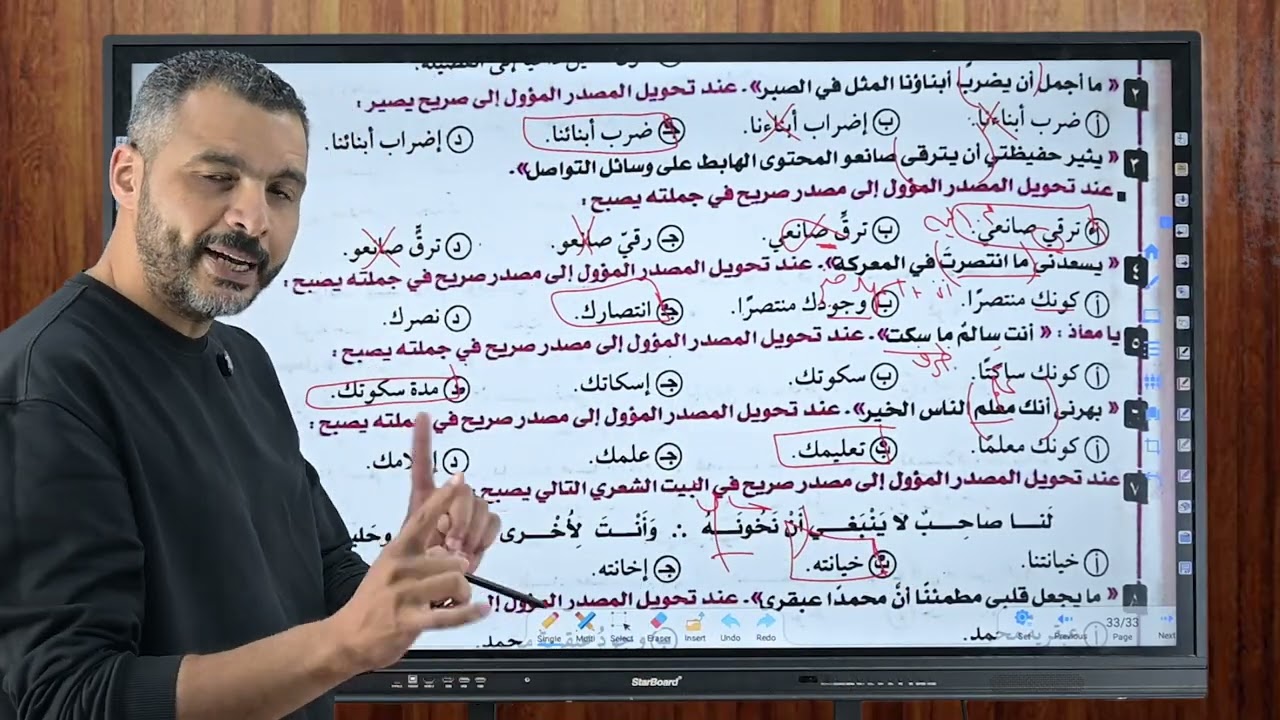 ٢ « ما أجمل أن يضرب أبناؤنا المثل في الصبر». عند تحويل المصدر المؤول إلى صريح يصير :
أ ضرب أبناءنا. ب إضراب أبناءنا. جـ ضرب أبنائنا. د إضراب أبنائنا.
٣ « يثير حفيظتي أن يترقى صانعو المحتوى الهابط على وسائل التواصل».
عند تحويل المصدر المؤول إلى مصدر صريح في جملته يصبح :
أ ترقي صانعي. ب ترقٍّ صانعي. جـ رقيّ صانعو. د ترقٍّ صانعو.
٤ « يسعدني ما انتصرت في المعركة». عند تحويل المصدر المؤول إلى مصدر صريح في جملته يصبح :
أ كونك منتصرًا. ب وجودك منتصرًا. جـ انتصارك. د نصرك.
٥ يا معاذ : « أنت سالمٌ ما سكت». عند تحويل المصدر المؤول إلى مصدر صريح في جملته يصبح :
أ كونك ساكتًا. ب سكوتك. جـ إسكاتك. د مدة سكوتك.
٦ « بهرني أنك معلم الناس الخير». عند تحويل المصدر المؤول إلى مصدر صريح في جملته يصبح :
أ كونك معلمًا. ب تعليمك. جـ علمك. د
٧ عند تحويل المصدر المؤول إلى مصدر صريح في البيت الشعري التالي يصبح :
لَنا صاحِبٌ لا يَنْبَغي أَنْ نَخُونَه ∴ وَأَنْتَ لِأُخْرى
أ خيانتنا. ب خيانته. جـ إخانته.
٨ « ما يجعل قلبي مطمئنًا أنَّ محمدًا عبقري». عند تحويل المصدر المؤول
Single Multi Select Eraser Insert Undo Redo Set Previous 33/33 Page Next
محمد.
StarBoard